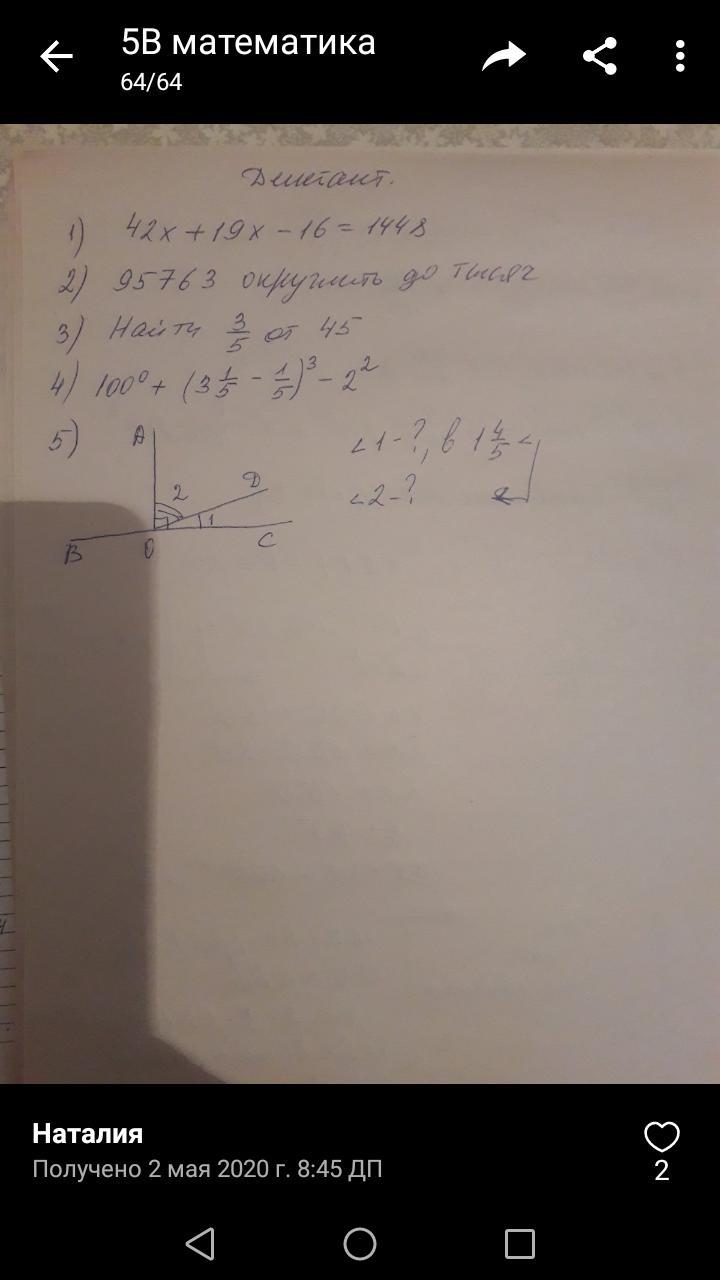 5В математика
64/64
Диктант.
1) 42x + 19x - 16 = 1448
2) 95763 округлить до тысяч
3) Найти 3/5 от 45
4) 100⁰ + (3 1/5 - 1/5)³ - 2²
5) A B O C D 2 1
∠1-?, в 1 4/5 <
∠2-?
Наталия
Получено 2 мая 2020 г. 8:45 ДП
2